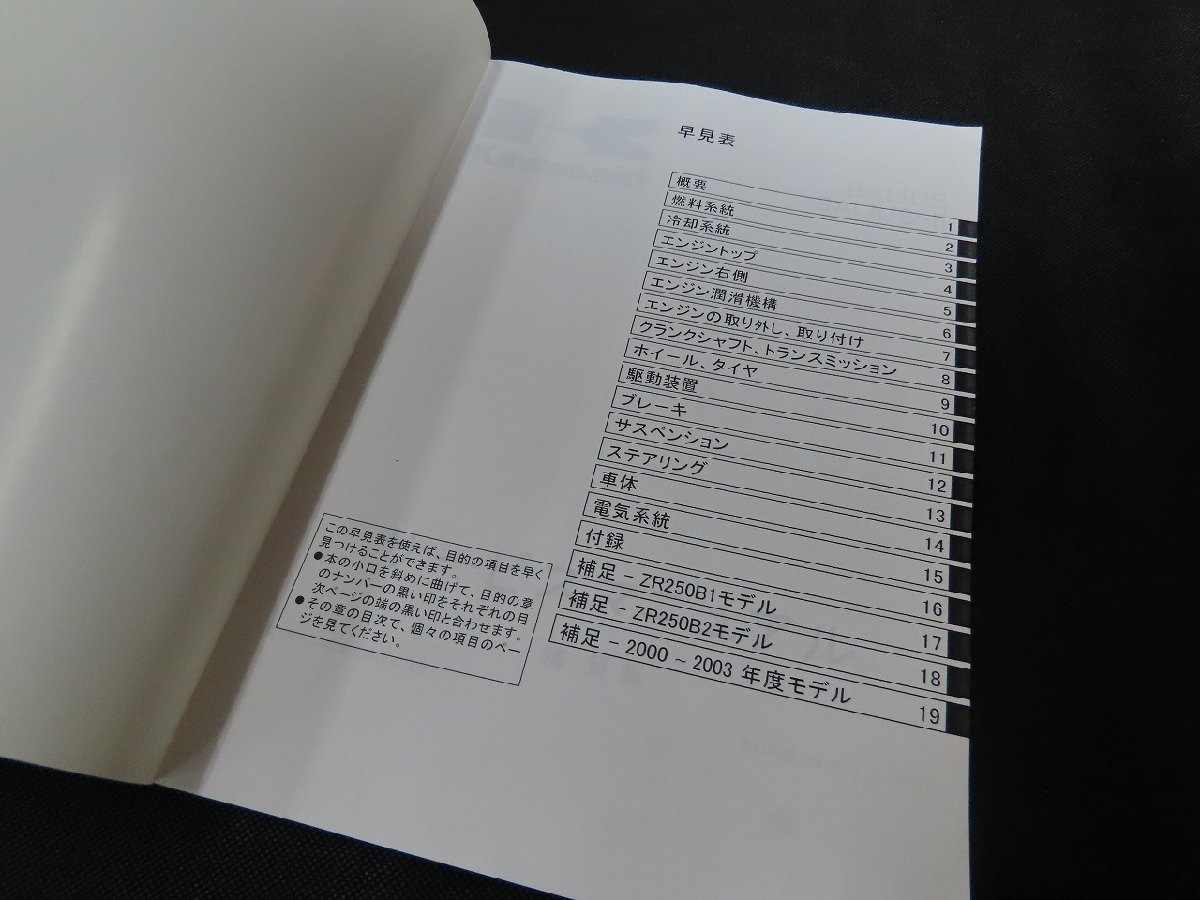 早見表
概要 1
燃料系統 2
冷却系統 3
エンジントップ 4
エンジン右側 5
エンジン潤滑機構 6
エンジンの取り外し、取り付け 7
クランクシャフト、トランスミッション 8
ホイール、タイヤ 9
駆動装置 10
ブレーキ 11
サスペンション 12
ステアリング 13
車体 14
電気系統 15
付録 16
補足 - ZR250B1モデル 17
補足 - ZR250B2モデル 18
補足 - 2000 ~ 2003 年度モデル 19
この早見表を使えば、目的の項目を早く
見つけることができます。
●本の小口を斜めに曲げて、目的の章
のナンバーの黒い印をそれぞれの目
次ページの端の黒い印と合わせます。
●その章の目次で、個々の項目のペー
ジを見てください。